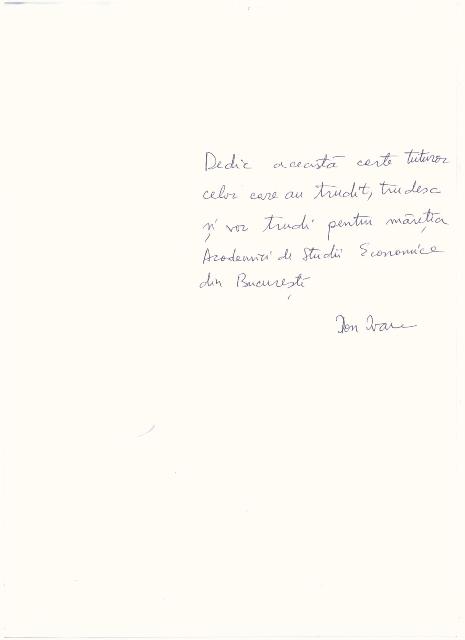 Dedic această carte tuturor
celor care au trudit, trudesc
și vor trudi pentru măreția
Academiei de Studii Economice
din București
Ion Ivan